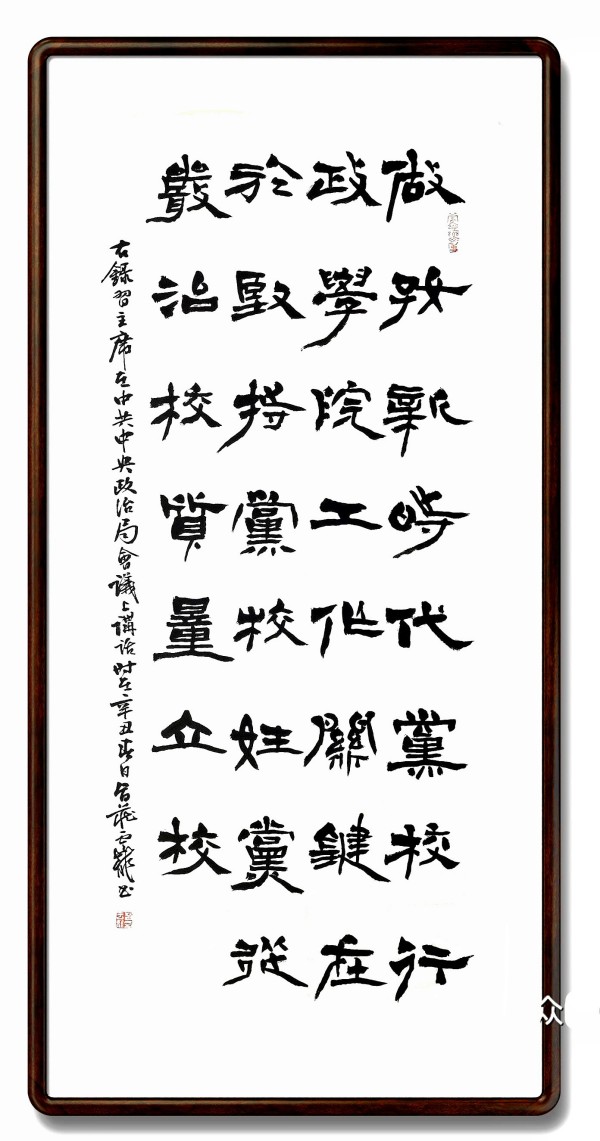 做好新時代黨校行
政學院工作關鍵在
於堅持黨校姓黨從
嚴治校質量立校
右錄習主席在中共中央政治局會議上講話時在辛丑春日
众